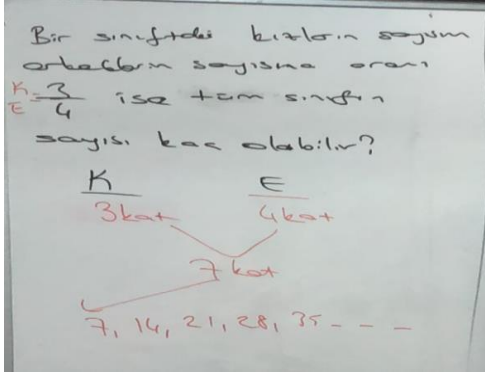 Bir sınıftaki kızların sayısının
erkeklerin sayısına oranı
K/E = 3/4 ise tüm sınıfın
sayısı kaç olabilir?
K E
3kat 4kat
7 kat
7, 14, 21, 28, 35 - - -